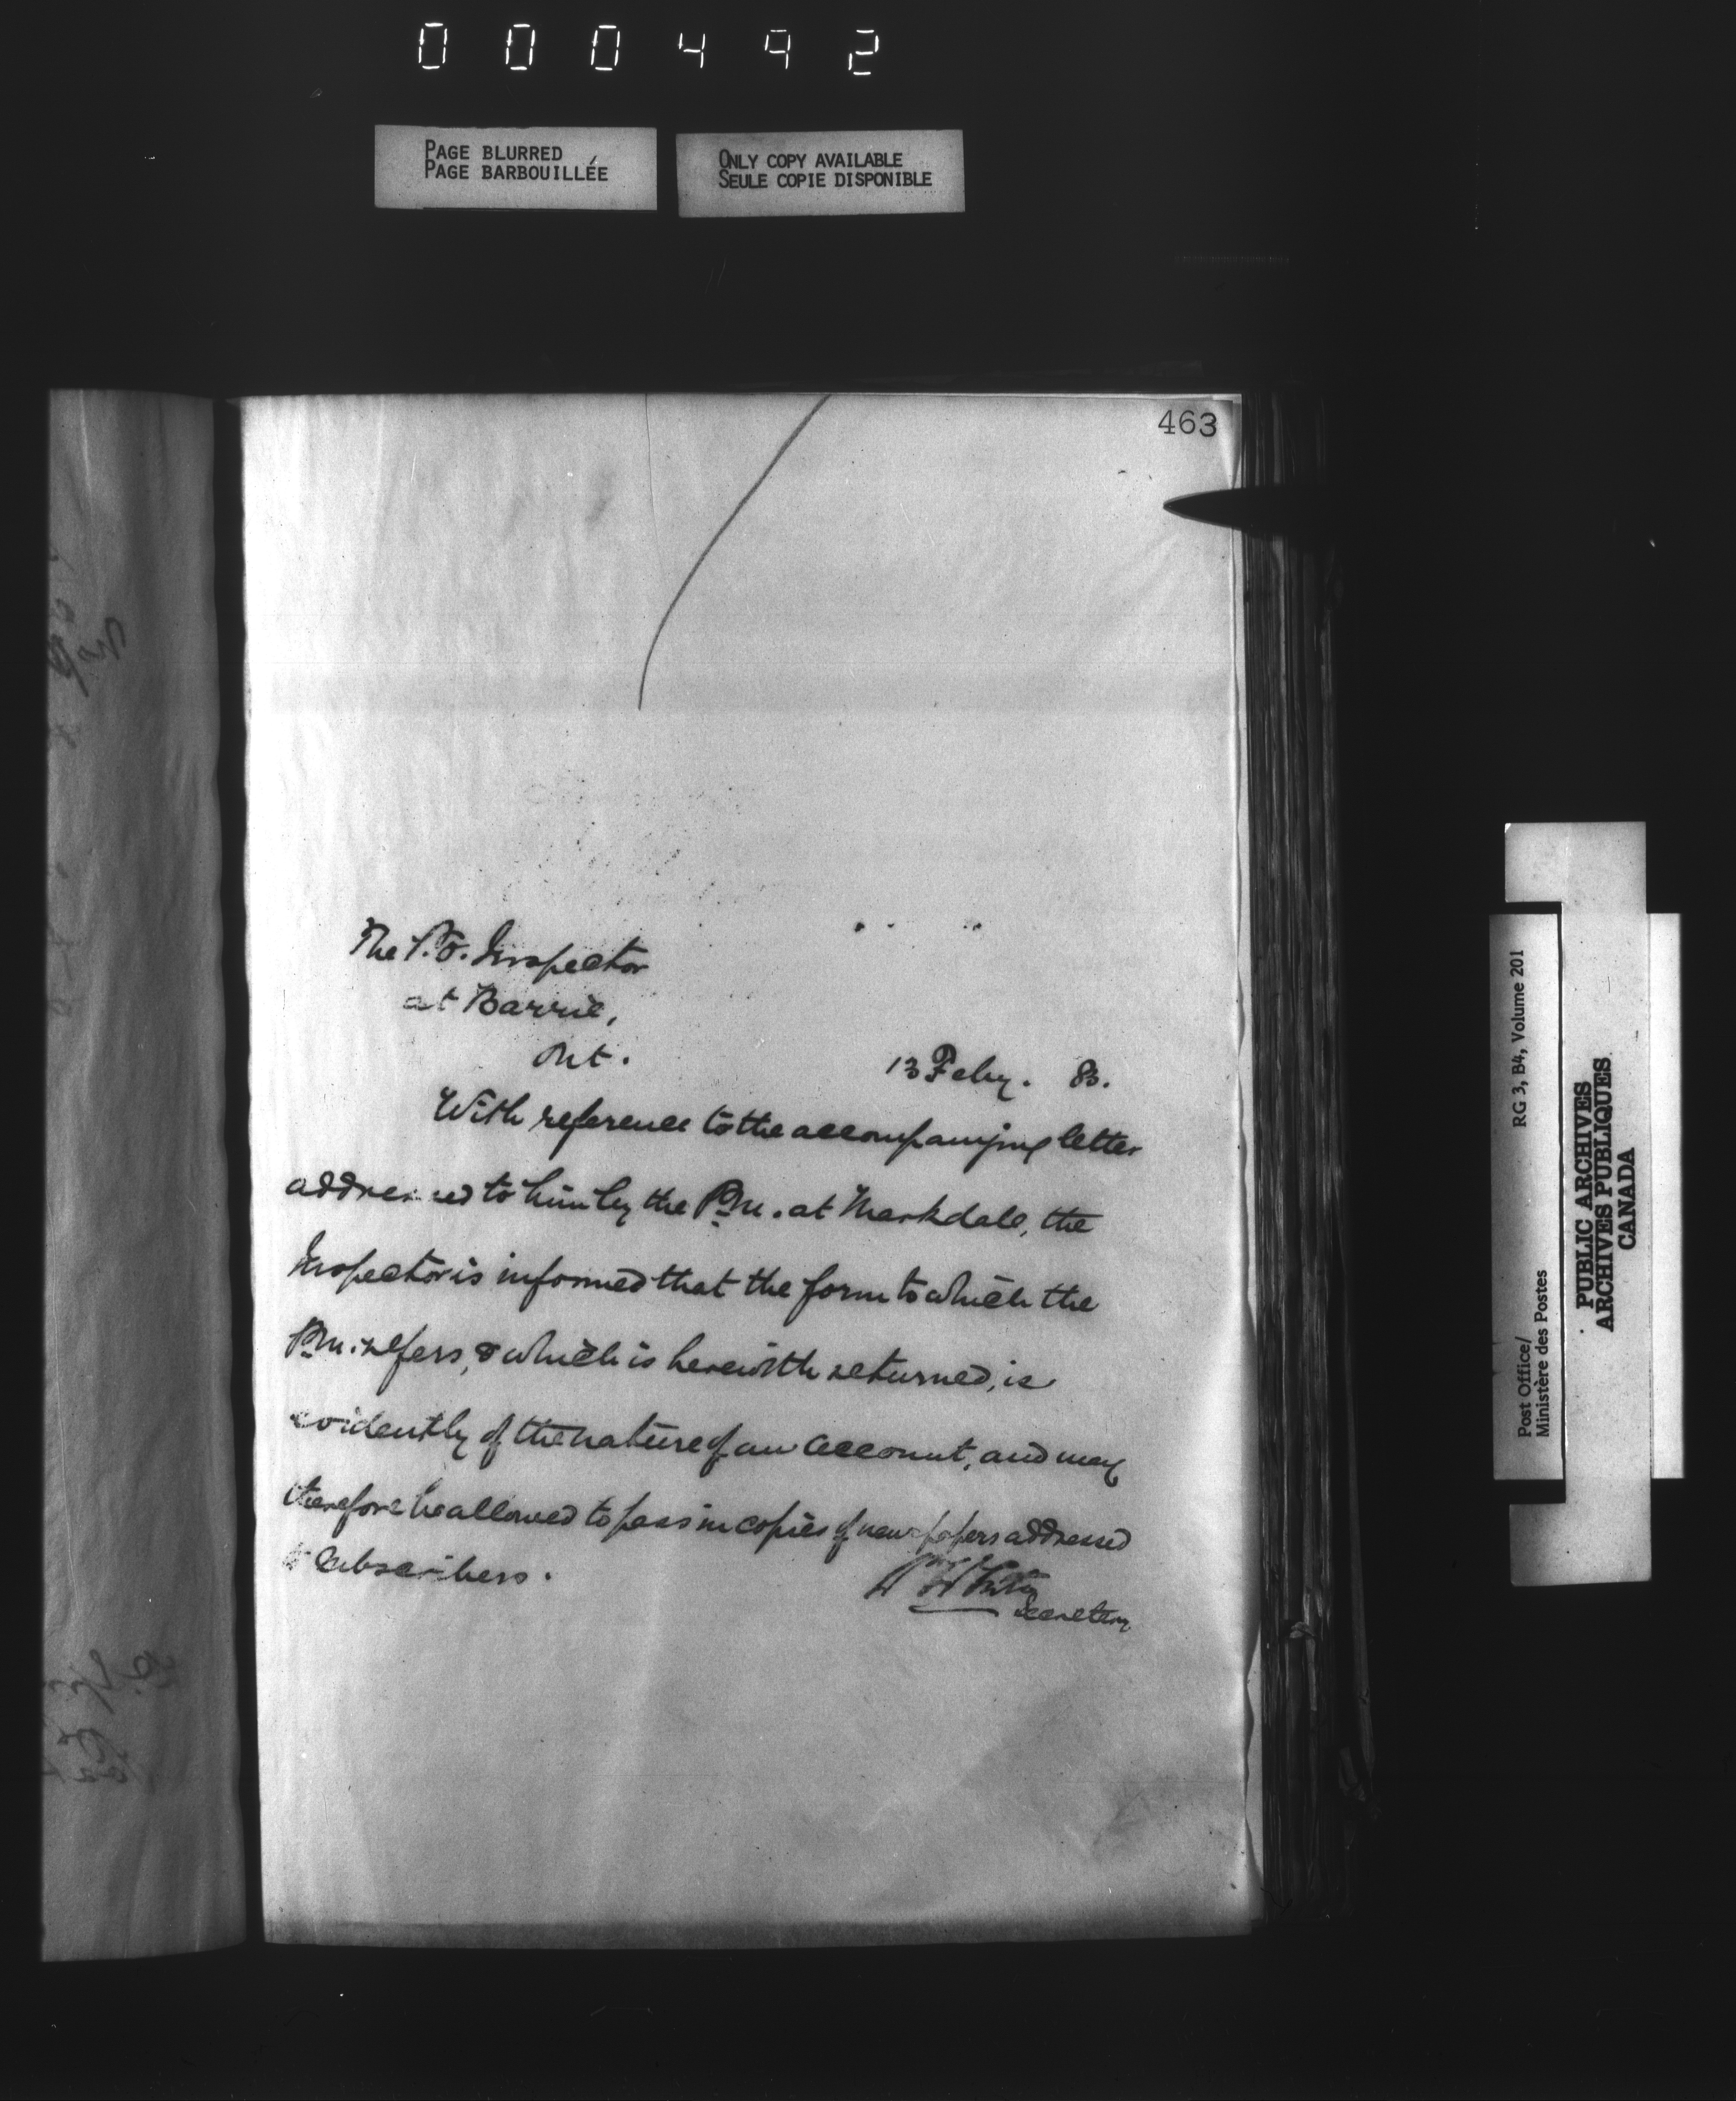 000492
PAGE BLURRED
PAGE BARBOUILLÉE
ONLY COPY AVAILABLE
SEULE COPIE DISPONIBLE
463
The P.O. Inspector
at Barrie,
Ont.
13 Feby. 83.
With reference to the accompanying letter
addressed to him by the P.M. at Markdale, the
Inspector is informed that the form to which the
P.M. refers, & which is herewith returned, is
evidently of the nature of an account, and may
therefore be allowed to pass in copies of newspapers addressed
to Subscribers.
Secretary
RG 3, B4, Volume 201
Post Office/
Ministère des Postes
PUBLIC ARCHIVES
ARCHIVES PUBLIQUES
CANADA